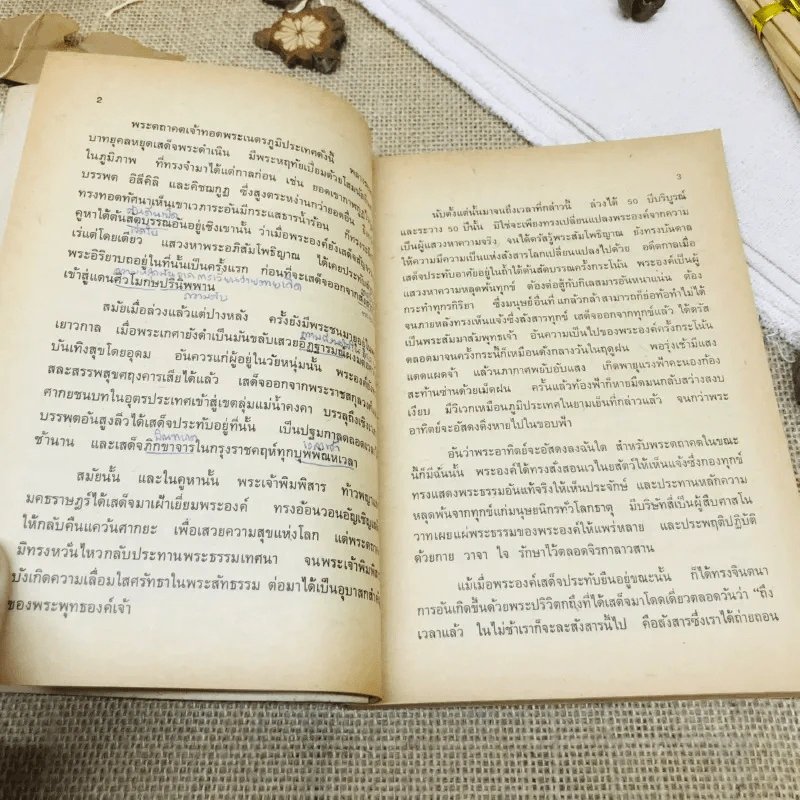 2
พระตถาคตเจ้าทอดพระเนตรภูมิประเทศดังนี้
บาทยุคลหยุดเสด็จพระดำเนิน มีพระหฤทัยเปี่ยมด้วยโสมนัส
ในภูมิภาพ ที่ทรงจำมาได้แต่กาลก่อน เช่น ยอดเขากาฬกูฏ
บรรพต อิสีคิลิ และคิชฌกูฏ ซึ่งสูงตระหง่านกว่ายอดอื่น
ทรงทอดทัศนาเห็นเขาเวภาระอันมีกระแสธารน้ำร้อน
คูหาใต้ต้นสัตบรรณอันอยู่เชิงเขานั้น ว่าเมื่อพระองค์ยังเสด็จ
เร่แต่โดยเดียว แสวงหาพระอภิสัมโพธิญาณ ได้เคยประทับ
พระอิริยาบถอยู่ในที่นั้นเป็นครั้งแรก ก่อนที่จะเสด็จออกจาก
เข้าสู่แดนศิวโมกษปรินิพพาน
ความดับ
สมัยเมื่อล่วงแล้วแต่ปางหลัง ครั้งยังมีพระชนมายุอยู่ใน
เยาวกาล เมื่อพระเกศายังดำเป็นมันขลับเสวย
บันเทิงสุขโดยอุดม อันควรแก่ผู้อยู่ในวัยหนุ่มนั้น พระองค์
สละสรรพสุขศฤงคารเสียได้แล้ว เสด็จออกจากพระราชสกุลวงศ์
ศากยชนบทในอุตรประเทศเข้าสู่เขตลุ่มแม่น้ำคงคา บรรลุถึง
บรรพตอันสูงลิ่วได้เสด็จประทับอยู่ที่นั้น เป็นปฐมกาลตลอด
ช้านาน และเสด็จภิกขาจารในกรุงราชคฤห์ทุกบุพพัณหเวลา
สมัยนั้น และในคูหานั้น พระเจ้าพิมพิสาร ท้าวพญา
มคธราษฎร์ได้เสด็จมาเฝ้าเยี่ยมพระองค์ ทรงอ้อนวอนอัญเชิญ
ให้กลับคืนแคว้นศากยะ เพื่อเสวยความสุขแห่งโลก แต่พระ
มีทรงหวั่นไหวกลับประทานพระธรรมเทศนา จนพระเจ้าพิมพิสาร
บังเกิดความเลื่อมใสศรัทธาในพระสัทธรรม ต่อมาได้เป็นอุบาสก
ของพระพุทธองค์เจ้า
3
นับตั้งแต่นั้นมาจนถึงเวลาที่กล่าวนี้ ล่วงได้ 50 ปีบริบูรณ์
และระวาง 50 ปีนั้น มิใช่จะเพียงทรงเปลี่ยนแปลงพระองค์จากความ
เป็นผู้แสวงหาความจริง จนได้ตรัสรู้พระสัมโพธิญาณ ยังทรงบันดาล
ให้ความมีความเป็นแห่งสังสารโลกเปลี่ยนแปลงไปด้วย อดีตกาลเมื่อ
เสด็จประทับอาศัยอยู่ในถ้ำใต้ต้นสัตบรรณครั้งกระโน้น พระองค์เป็นผู้
แสวงหาความหลุดพ้นทุกข์ ต้องต่อสู้กับกิเลสมารอันหนาแน่น ต้อง
กระทำทุกรกิริยา ซึ่งมนุษย์อื่นที่ แกล้วกล้าสามารถก็ย่อท้อทำไม่ได้
จนภายหลังทรงเห็นแจ้งซึ่งสังสารทุกข์ เสด็จออกจากทุกข์แล้ว ได้ตรัส
เป็นพระสัมมาสัมพุทธเจ้า อันความเป็นไปของพระองค์ครั้งกระโน้น
ตลอดมาจนครั้งกระนี้ก็เหมือนดั่งกลางวันในฤดูฝน พอรุ่งเช้ามีแสง
แดดแผดจ้า แล้วนภากาศพยับอับแสง เกิดพายุแรงฟ้าคะนองก้อง
สะท้านซ่านด้วยเม็ดฝน ครั้นแล้วท้องฟ้าก็หายมืดมนกลับสว่างสงบ
เงียบ มีวิเวกเหมือนภูมิประเทศในยามเย็นที่กล่าวแล้ว จนกว่าพระ
อาทิตย์จะอัสดงดิ่งหายไปในขอบฟ้า
อันว่าพระอาทิตย์จะอัสดงลงฉันใด สำหรับพระตถาคตในขณะ
นี้ก็มีฉันนั้น พระองค์ได้ทรงสั่งสอนเวไนยสัตว์ให้เห็นแจ้งซึ่งกองทุกข์
ทรงแสดงพระธรรมอันแท้จริงให้เห็นประจักษ์ และประทานหลักความ
หลุดพ้นจากทุกข์แก่มนุษยนิกรทั่วโลกธาตุ มีบริษัทสี่เป็นผู้สืบศาสโน
วาทเผยแผ่พระธรรมของพระองค์ให้แพร่หลาย และประพฤติปฏิบัติ
ด้วยกาย วาจา ใจ รักษาไว้ตลอดจิรกาลาวสาน
แม้เมื่อพระองค์เสด็จประทับยืนอยู่ขณะนั้น ก็ได้ทรงจินตนา
การอันเกิดขึ้นด้วยพระปริวิตกถึงที่ได้เสด็จมาโดดเดี่ยวตลอดวันว่า “ถึง
เวลาแล้ว ในไม่ช้าเราก็จะละสังสารนี้ไป คือสังสารซึ่งเราได้ถ่ายถอน